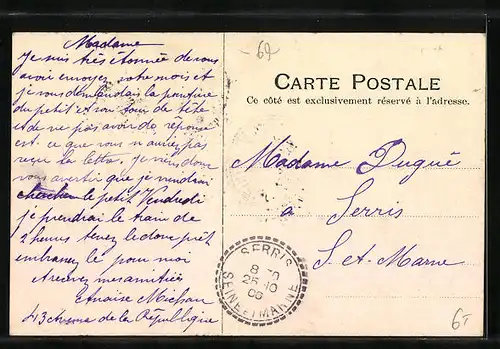 Madame
Je suis très étonnée de vous
avoir envoyez votre mois et
je vous demendais la pointure
du petit et son tour de tête
et de ne pas avoir de réponse
est ce que vous n'auriez pas
reçue la lettre. Je viens donc
vous avertir que je viendrai
le petit Vendredi
je prendrai le train de
2 heures tenez le donc prêt
embrassez le pour moi
Recevez mes amitiés
Michau
43 de la République
69
CARTE POSTALE
Ce côté est exclusivement réservé à l'adresse.
Madame Dugué
a Serris
S. et. Marne
SERRIS
8
25 10
06
SEINE ET MARNE